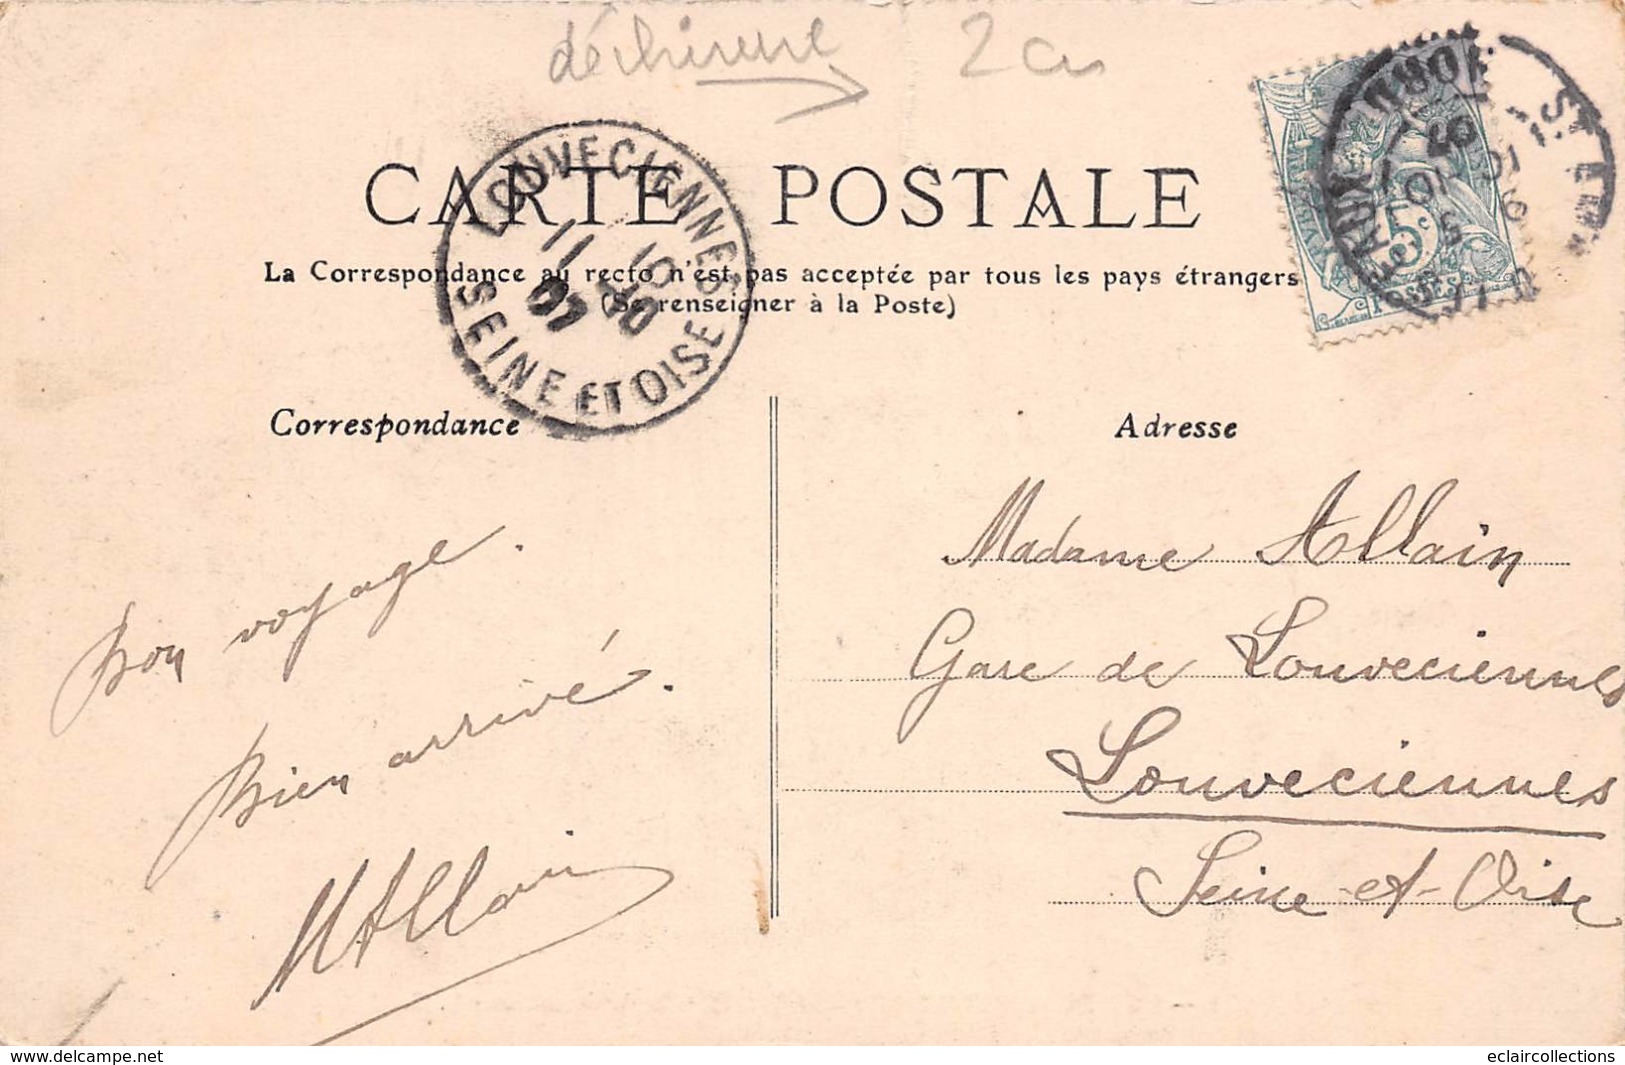 déchirure 2 cm
CARTE POSTALE
La Correspondance au recto n'est pas acceptée par tous les pays étrangers
(Se renseigner à la Poste)
LOUVECIENNES
11 15
07 10
SEINE ET OISE
5c
POSTES
Correspondance
Adresse
Bon voyage.
Bien arrivé.
MAllain
Madame Allain
Gare de Louveciennes
Louveciennes
Seine-et-Oise
www.delcampe.net
eclaircollections